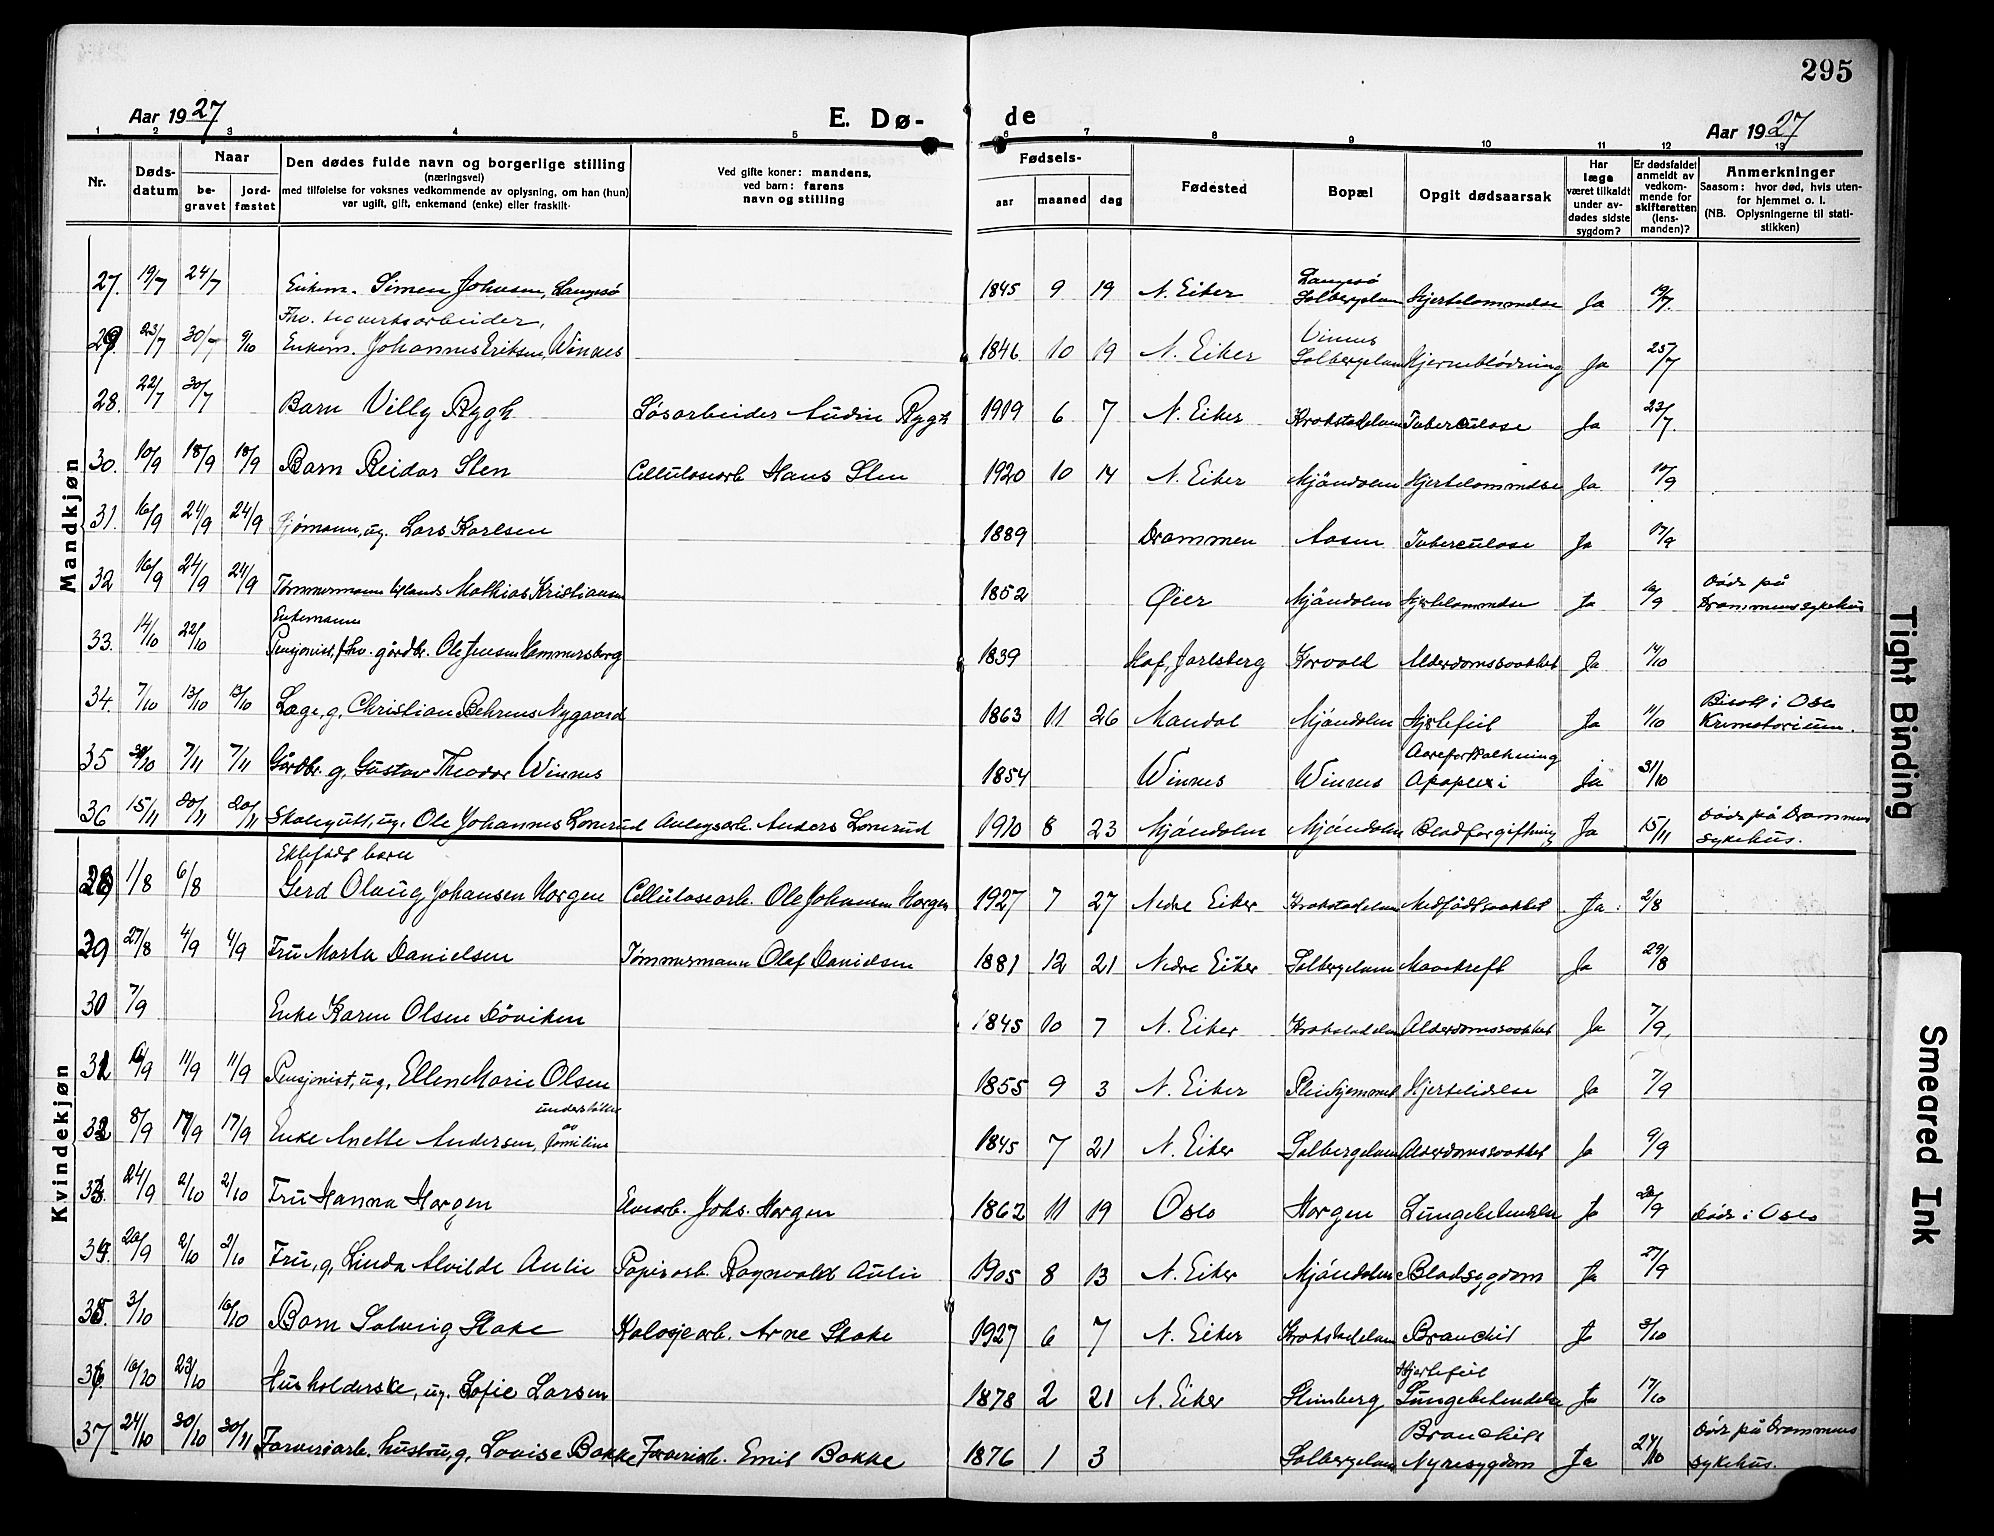 295
Aar 1927
E. Dø-
de
Aar 1927
1 2 3 4 5 6 7 8 9 10 11 12 13
Nr.
Døds-
datum
Naar
be-
gravet
jord-
fæstet
Den dødes fulde navn og borgerlige stilling
(næringsvei)
med tilføielse for voksnes vedkommende av oplysning, om han (hun)
var ugift, gift, enkemand (enke) eller fraskilt.
Ved gifte koner: mandens,
ved barn: farens
navn og stilling
Fødsels-
aar maaned dag
Fødested
Bopæl
Opgit dødsaarsak
Har
læge
været tilkaldt
under av-
dødes sidste
sygdom?
Er dødsfaldet
anmeldt av
vedkom-
mende for
skifteretten
(lens-
manden)?
Anmerkninger
Saasom: hvor død, hvis uten-
for hjemmet o. l.
(NB. Oplysningerne til stati-
stikken)
Mandkjøn
27. 19/7 24/7 Enkem. Simen Johnsen, Langesø 1845 9 19 N. Eiker Langesø Solbergelven Hjertelammelse Ja 19/7.
29. 23/7 30/7 9/10 Fhv. tegverksarbeider, Enkem. Johannes Eriksen, Winnes 1846 10 19 N. Eiker Vinnes Solbergelven Hjerneblødning Ja 25/7
28. 22/7 30/7 Barn Villy Rygh Løsarbeider Audin Rygh 1919 6 7 N. Eiker Krokstadelven Tuberculose Ja 23/7.
30. 10/9 18/9 18/9 Barn Reidar Sten Cellulosearb. Hans Sten 1920 10 14 N. Eiker Mjøndalen Hjertelammelse Ja 10/9
31. 16/9 24/9 24/9 Sjømann, ug. Lars Karlsen 1889 Drammen Aasen Tuberculose Ja 17/9
32 16/9 24/9 24/9 Tømmermann Mathias Kristiansen 1852 Øier Mjøndalen Hjertelammelse Ja 19/9 Død på Drammens sykehus
33. 14/10 22/10 Enkemann Pensjonist, fhv. gårdbr. Ole Jensen Hammersborg 1839 Hof, Jarlsberg Korvald Alderdomssvakhet Ja 14/10
34. 7/10 13/10 13/10 Læge, g, Christian Behrens Nygaard 1863 11 26 Mandal Mjøndalen Hjertefeil Ja 11/10 Bisatt i Oslo Krematorium.
35 30/10 7/11 7/11 Gårdbr. g, Gustav Theodor Winnes 1854 Winnes Winnes Aareforkalkning Apoplexi Ja 31/10
36 15/11 20/11 20/11 Skolegutt, ug. Ole Johannes Lonerud Anlegsarb. Anders Lonerud 1910 8 23 Mjøndalen Mjøndalen Blodforgiftning Ja 15/11 Død på Drammens sykehus.
Kvindekjøn
28 1/8 6/8 Ektefødt barn Gerd Olaug Johansen Horgen Cellulosearb. Ole Johansen Horgen 1927 7 27 Nedre Eiker Krokstadelven Medfødt svakhet Ja. 2/8
29 27/8 4/9 4/9 Fru Marta Danielsen Tømmermann Olaf Danielsen 1881 12 21 Nedre Eiker Solbergelven Mavekreft Ja 29/8
30 7/9 Enke Karen Olsen Døviken 1845 10 7 N. Eiker Krokstadelven Alderdomssvakhet Ja 7/9.
31 6/9 11/9 11/9 Pensjonist, ug, Ellen Marie Olsen 1855 9 3 N. Eiker Pleiehjemmet Hjertelidelse Ja 7/9
32 8/9 17/9 17/9 Enke Anette Andersen, understøttes av familien 1845 7 21 N. Eiker Solbergelven Alderdomssvakhet Ja 9/9
33 24/9 2/10 2/10 Fru Hanna Horgen Elvearb. Johs. Horgen 1862 11 19 Oslo Horgen Lungebetendelse Ja 26/9 Død i Oslo
34 26/9 2/10 2/10 Fru, g, Linda Alvilde Aulie Papirarb. Ragnvald Aulie 1905 8 13 N. Eiker Mjøndalen Blodsygdom Ja 27/9
35 3/10 16/10 Barn Solveig Stake Kalosjearb. Arne Stake 1927 6 7 N. Eiker Krokstadelven Bronchit Ja 3/10
36 16/10 23/10 Husholderske, ug. Sofie Larsen 1878 2 21 N. Eiker Stenberg Hjertefeil Lungebetendelse Ja 17/10
37 24/10 30/10 30/11 Farveriarb. hustru, g, Lovise Bakke Farveriarb. Emil Bakke 1876 1 3 Solbergelven Bronchit Nyresygdom Ja 24/10 Død på Drammens sykehus.
Tight Binding
Smeared Ink